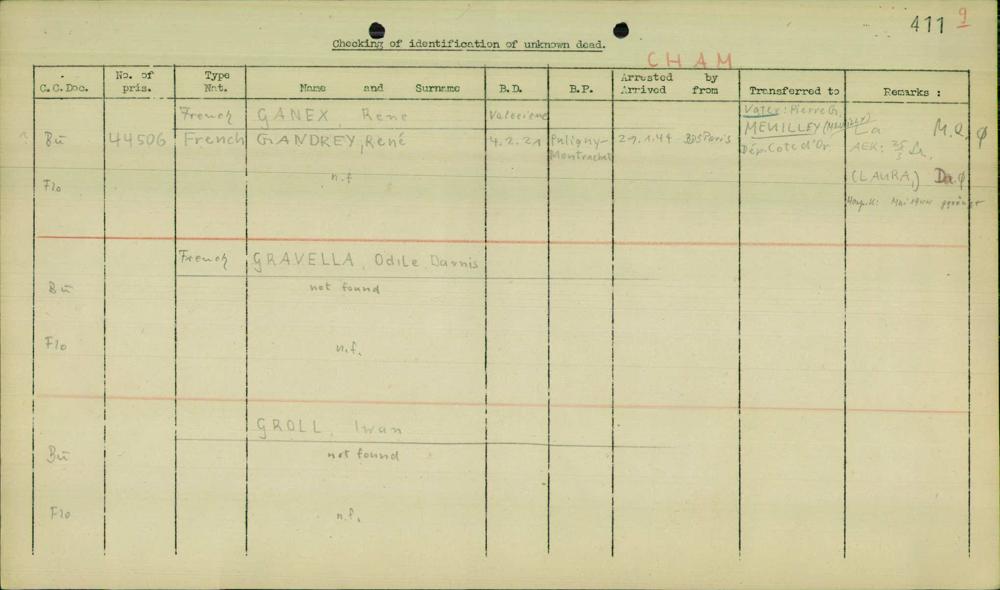 411 9
Checking of identification of unknown dead.
CHAM
C.C.Doc. No. of pris. Type Nat. Name and Surname B.D. B.P. Arrested by Arrived from Transferred to Remarks :
French GANEX, Rene Valecienne Vater: Pierre G.
Bü 44506 French GANDREY, René 4.2.21 Puligny-Montrachet 29.1.44 BDS Paris MEUILLEY Dép. Cote d'Or La M.Q. ϕ
AEK:
Flo n.f (LAURA,) Da ϕ
French GRAVELLA, Odile Darnis
Bü not found
Flo n.f.
GROLL, Iwan
Bü not found
Flo n.f.